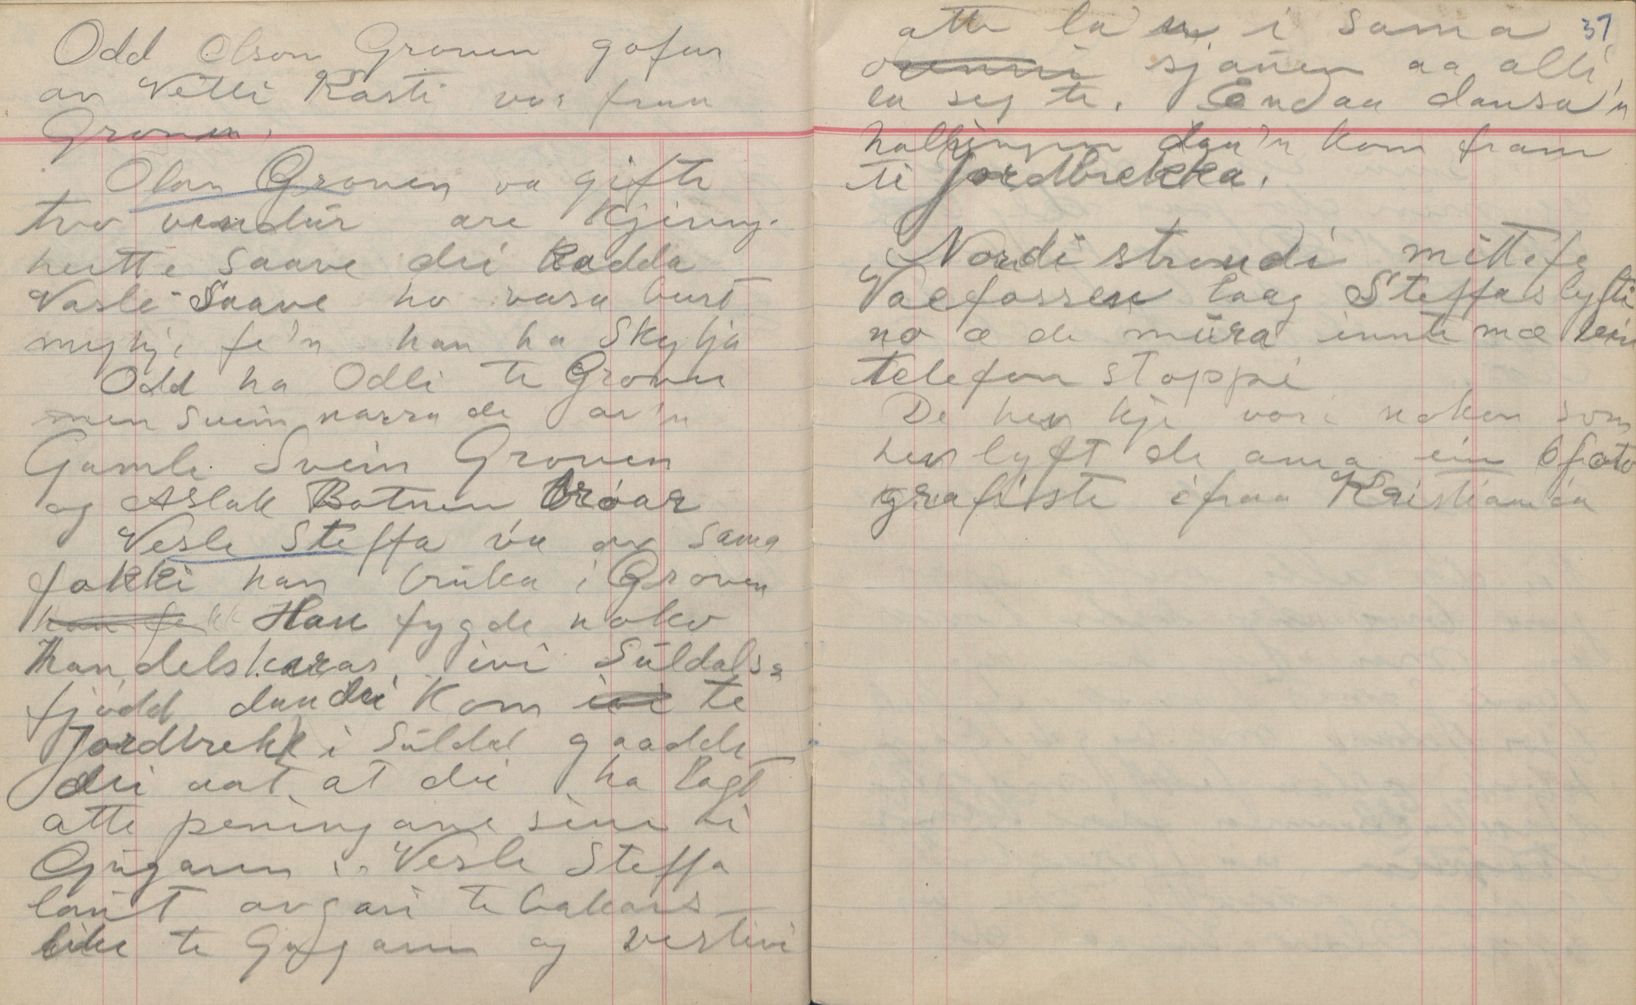 Odd Olson Groven gofar
av Vetli Kasti var fraa
Groven.
Olav Groven va gifte
tvo vendur are Kjering.
heitte Saave dei kadda
Vesle Saave ho vasa burt
mykji fe'n han ha Skylja
Odd ha Odli te Groven
men Svein narra de av'n
Gamle Svein Groven
og Aslak Botnen brøar
Vesle Steffa va av sama
fokki han bruka i Groven
han fekk Han fygde noko
Handelskaras ivi Suldals
fjødd daa dei kom ivi te
Jordbrekk i Suldal gaadde
dei aat at dei ha lagt
atte peningane sine i
Gjugaren Vesle Steffa
laut avgari te bakars
like te Gjugaren og vestivi
37
atte la'n i sama
sjauen aa alli
la seg te. Endaa dansa'n
hallingen daa'n kom fram
ti Jordbrekka.
Nordi strondi mittefe
Vaefossen laag Steffaslyfti
no æ de mura innte mæ ein
telefon stoppi
De hev kje vori noken som
hev lyft de ama ein foto
grafiste ifraa Kristiania